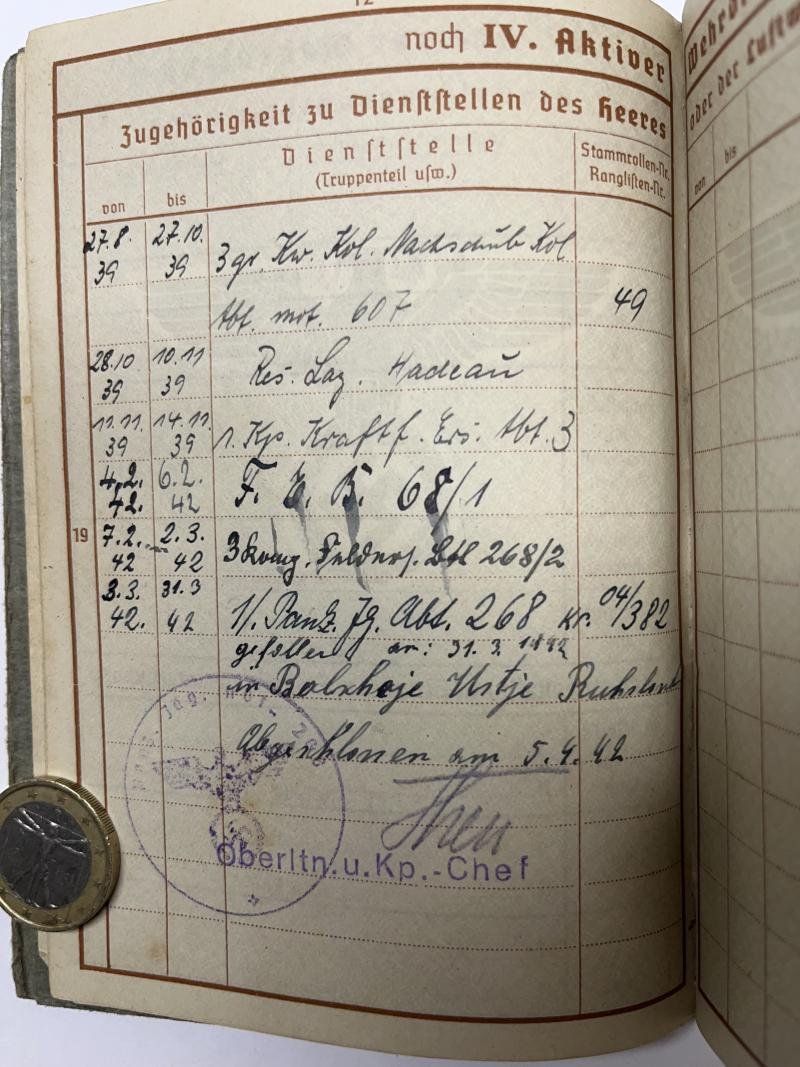 12
noch IV. Aktiver
Zugehörigkeit zu Dienststellen des Heeres
von
bis
Dienststelle
(Truppenteil usw.)
Stammrollen-Nr.
Ranglisten-Nr.
27.8. 39
27.10. 39
3 gr. Kw. Kol. Nachschub Kol
Abt. mot. 607
49
28.10 39
10.11 39
Res. Laz.
11.11. 39
14.11. 39
1. Kp. Kraftf. Ers. Abt. 3
4.2. 42.
6.2. 42
F. E. B. 68/1
19
7.2. 42
2.3. 42
3 Komp. Felders. Btl 268/2
3.3. 42.
31.3 42
1/. Panz. Jg. Abt. 268 Kr. 04/382
gefallen am: 31.3.1942
in Bolschoje Ustje Ruhsland
Abgeschlossen am 5.4.42
Oberltn. u. Kp.-Chef
Wehrdi
oder der Luftw
von
bis